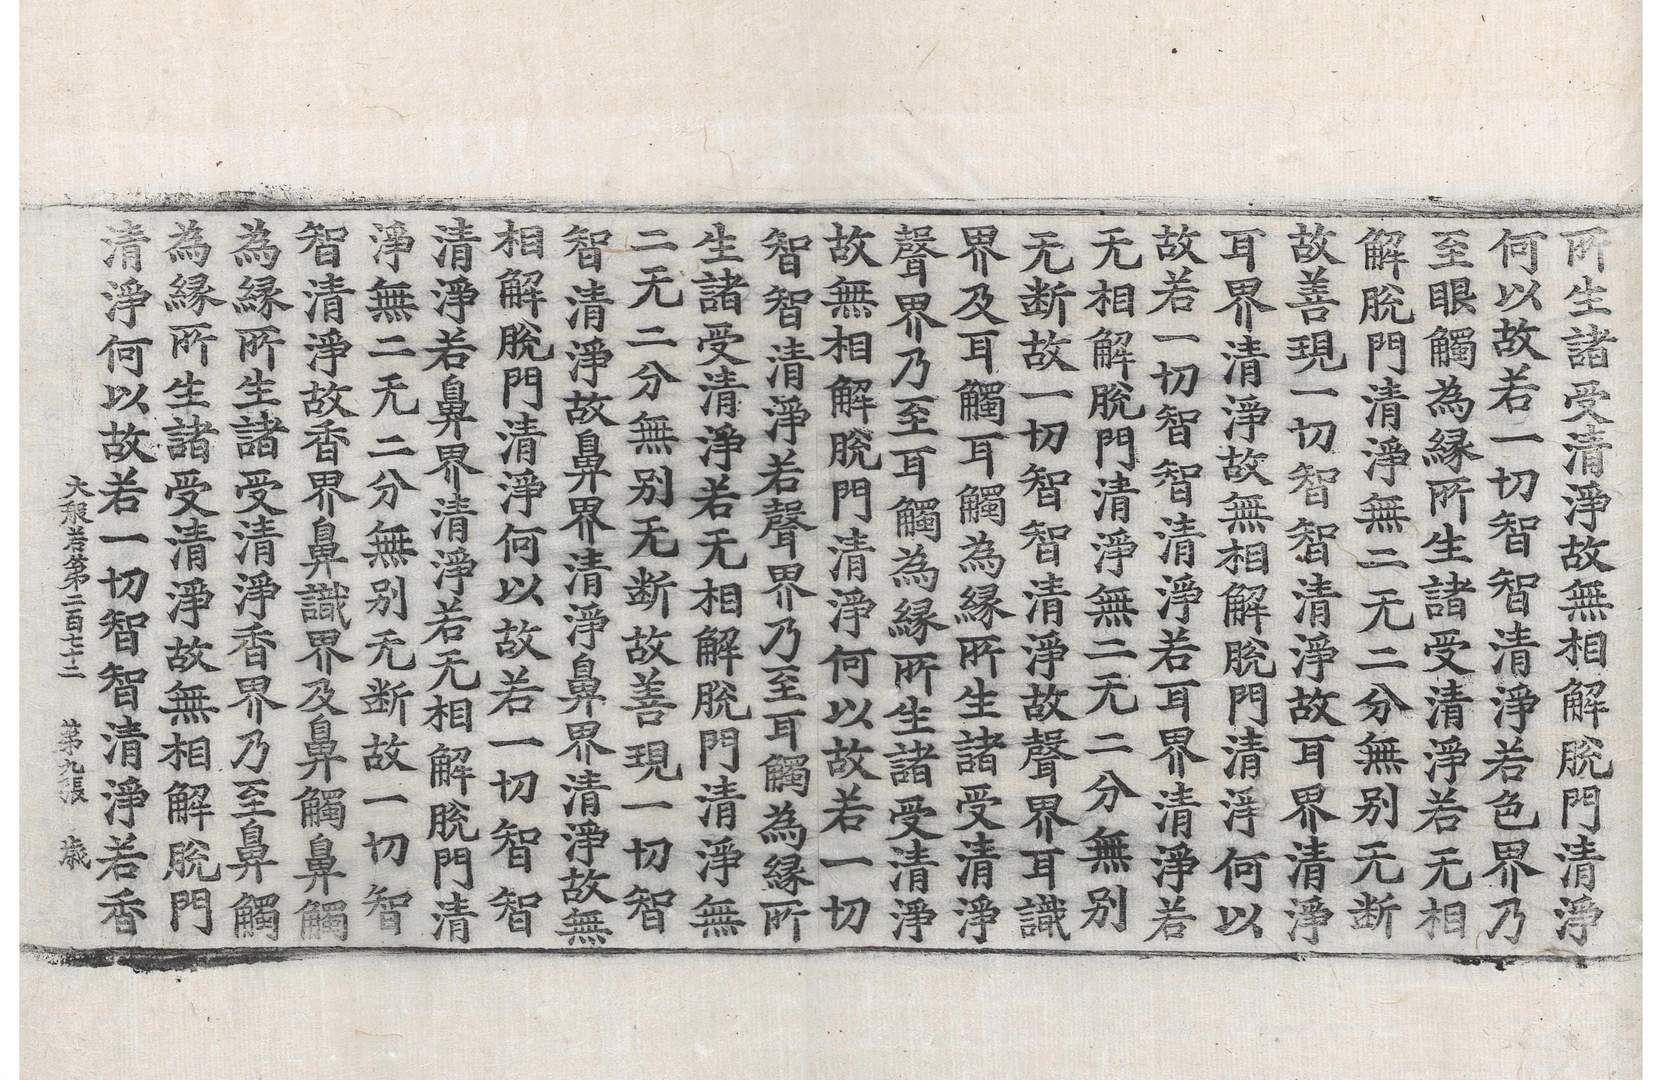 所生諸受清淨故無相解脫門清淨
何以故若一切智智清淨若色界乃
至眼觸為緣所生諸受清淨若无相
解脫門清淨無二无二分無別无断
故善現一切智智清淨故耳界清淨
耳界清淨故無相解脫門清淨何以
故若一切智智清淨若耳界清淨若
无相解脫門清淨無二无二分無別
无断故一切智智清淨故聲界耳識
界及耳觸耳觸為緣所生諸受清淨
聲界乃至耳觸為緣所生諸受清淨
故無相解脫門清淨何以故若一切
智智清淨若聲界乃至耳觸為緣所
生諸受清淨若无相解脫門清淨無
二无二分無別无断故善現一切智
智清淨故鼻界清淨鼻界清淨故無
相解脫門清淨何以故若一切智智
清淨若鼻界清淨若无相解脫門清
淨無二无二分無別无断故一切智
智清淨故香界鼻識界及鼻觸鼻觸
為緣所生諸受清淨香界乃至鼻觸
為緣所生諸受清淨故無相解脫門
清淨何以故若一切智智清淨若香
大般若第二百七十二 第九張 歲